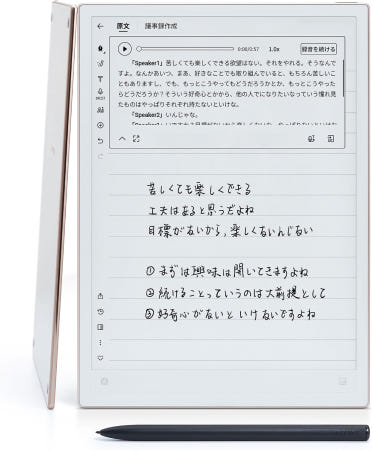 原文 議事録作成
0:00/0:57 1.0x 録音を続ける
「Speaker1」苦しくても楽しくできる欲望はない。それをやれる。そうなんで
すよ。なんかあいつ、まあ、好きなことでも取り組んでいると、もちろん苦しいこ
ともありますし、でも、もっとこうやってもどうだろうかとか、もっとこうやった
らどうだろうか？そういう好奇心とかから、他の人でになりたいなっていう憧れ見
たものはやっぱりそれぞれ持たないといけな。
「Speaker2」いんじゃな。
苦しくても楽しくできる
工夫はあると思うだよね
目標がないから、楽しくないんじない
①まずは興味は聞いてきますよね
②続けることっていうのは大前提として
③好奇心がないといけないですよね